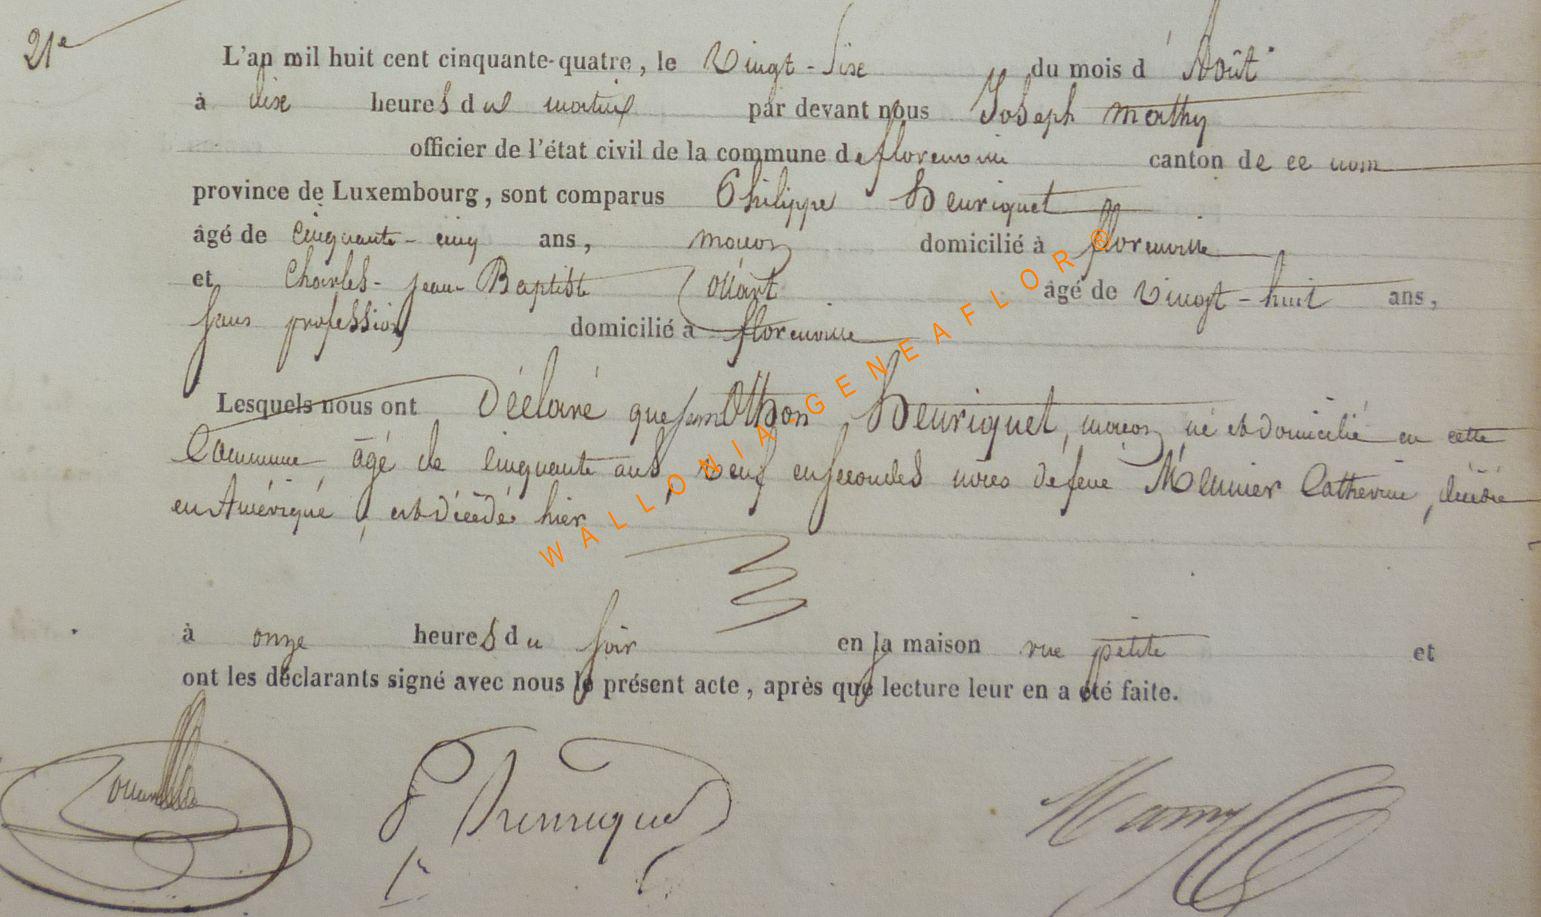 21e
L'an mil huit cent cinquante-quatre, le Vingt-six du mois d'Août
à dix heures du matin par devant nous Joseph Mathy
officier de l'état civil de la commune de florenville canton de ce nom
province de Luxembourg, sont comparus Philippe Henriquet
âgé de cinquante-cinq ans, maçon domicilié à florenville
et Charles-jean-Baptiste âgé de vingt-huit ans,
sans profession domicilié à florenville
Lesquels nous ont Déclaré que Othon Henriquet, maçon, né et domicilié en cette
Commune âgé de cinquante ans, veuf en secondes noces de feue Meunier Catherine, décédée
en Amérique, est décédé hier
à onze heures du soir en la maison rue petite et
ont les déclarants signé avec nous le présent acte, après que lecture leur en a été faite.
WALLONIA-GENEAFLOR®